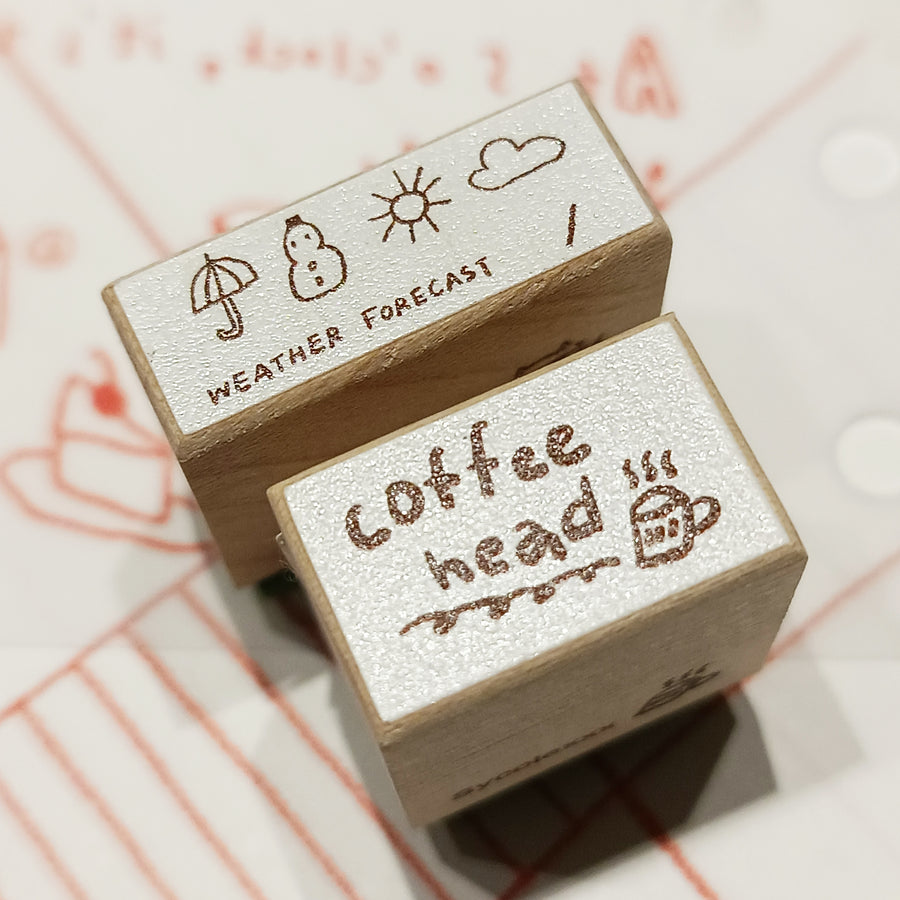 WEATHER FORECAST
/
coffee
head